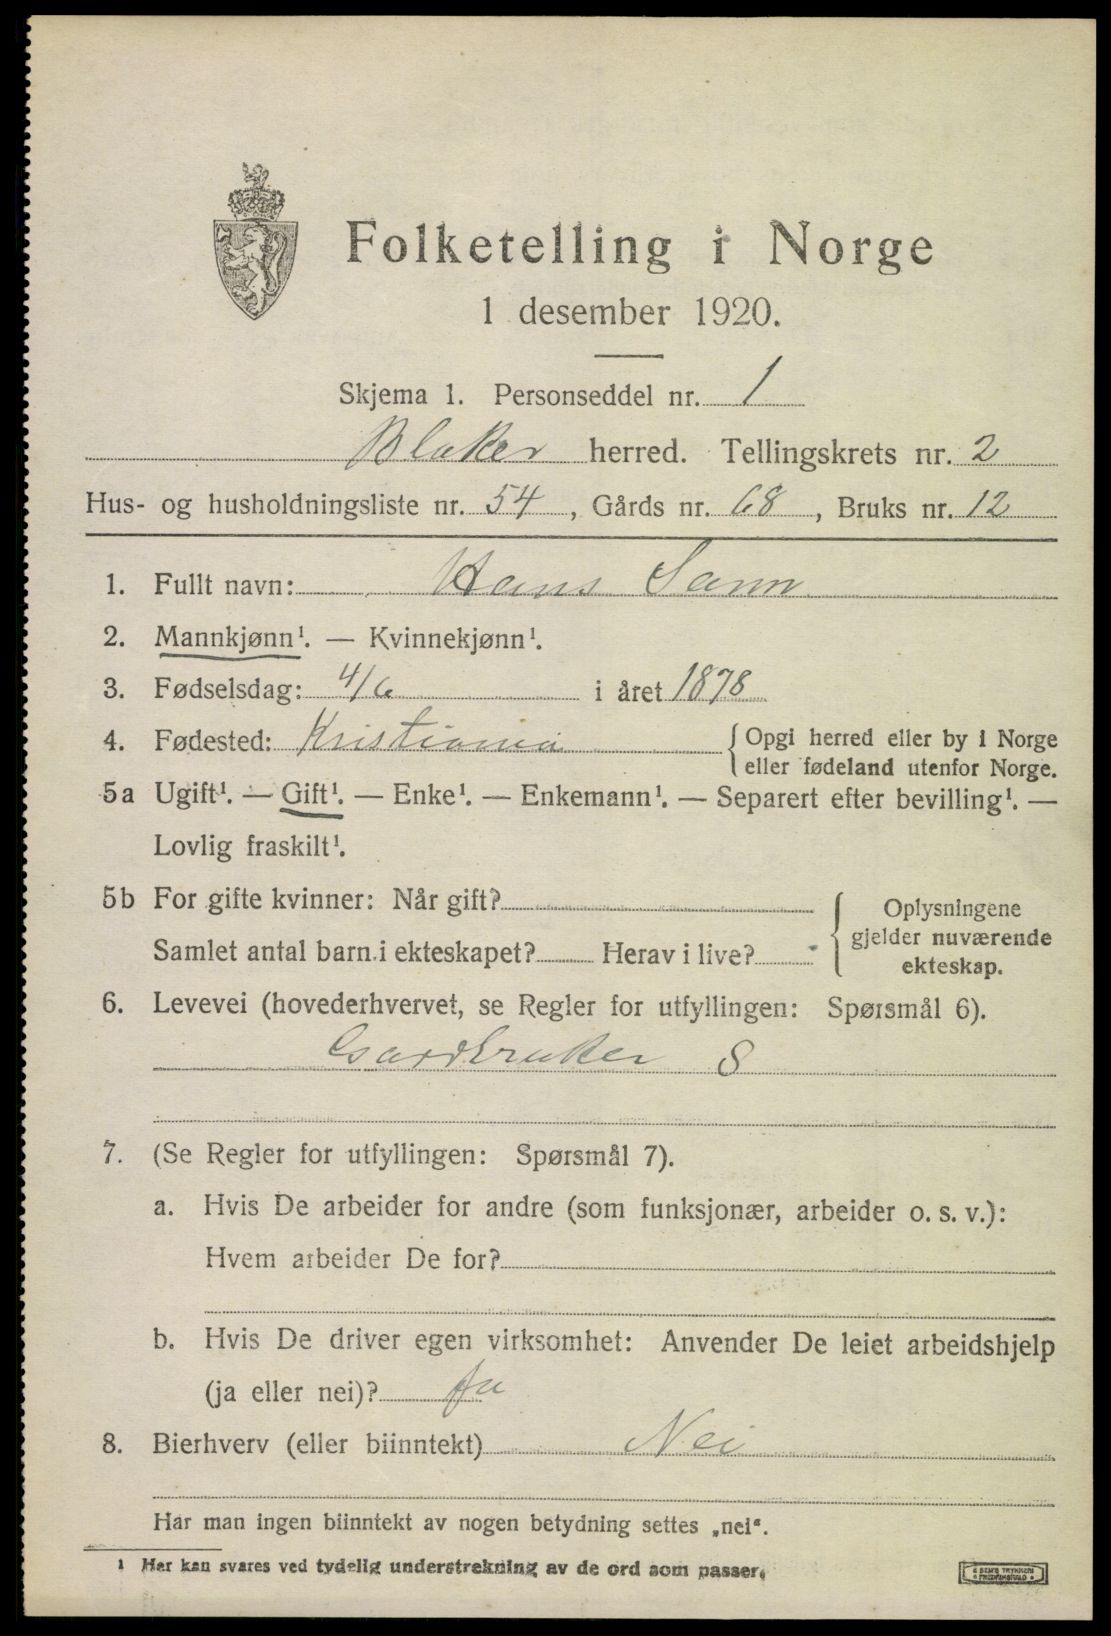 Folketelling i Norge
1 desember 1920.
Skjema 1. Personseddel nr. 1
Blaker herred. Tellingskrets nr. 2
Hus- og husholdningsliste nr. 54, Gårds nr. 68, Bruks nr. 12
1. Fullt navn: Hans Sann
2. Mannkjønn¹. — Kvinnekjønn¹.
3. Fødselsdag: 4/6 i året 1878
4. Fødested: Kristiania { Opgi herred eller by i Norge
eller fødeland utenfor Norge.
5a Ugift¹. — Gift¹. — Enke¹. — Enkemann¹. — Separert efter bevilling¹. —
Lovlig fraskilt¹.
5b For gifte kvinner: Når gift?
Samlet antal barn i ekteskapet? Herav i live?
{ Oplysningene
gjelder nuværende
ekteskap.
6. Levevei (hovederhvervet, se Regler for utfyllingen: Spørsmål 6).
Gardbruker S
7. (Se Regler for utfyllingen: Spørsmål 7).
a. Hvis De arbeider for andre (som funksjonær, arbeider o. s. v.):
Hvem arbeider De for?
b. Hvis De driver egen virksomhet: Anvender De leiet arbeidshjelp
(ja eller nei)? Ja
8. Bierhverv (eller biinntekt) Nei
Har man ingen biinntekt av nogen betydning settes „nei“.
¹ Her kan svares ved tydelig understrekning av de ord som passer.